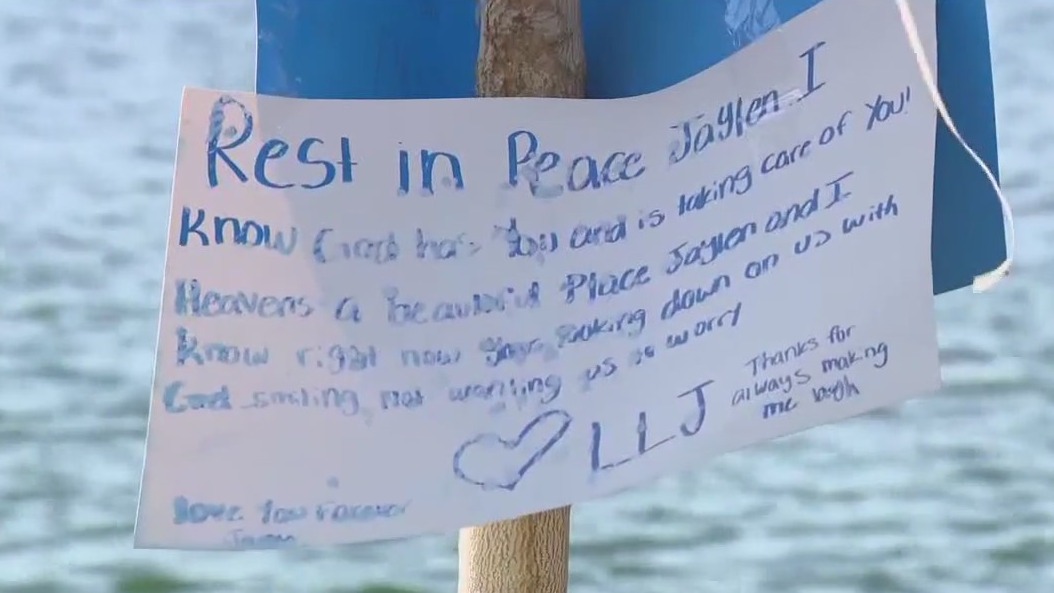 Rest in Peace Jaylen I
Know God has You and is taking care of You!
Heavens a beautiful Place Jaylen and I
Know right now your looking down on us with
God smiling not wanting us to worry
LLJ
Thanks for
always making
me laugh
Love You Forever